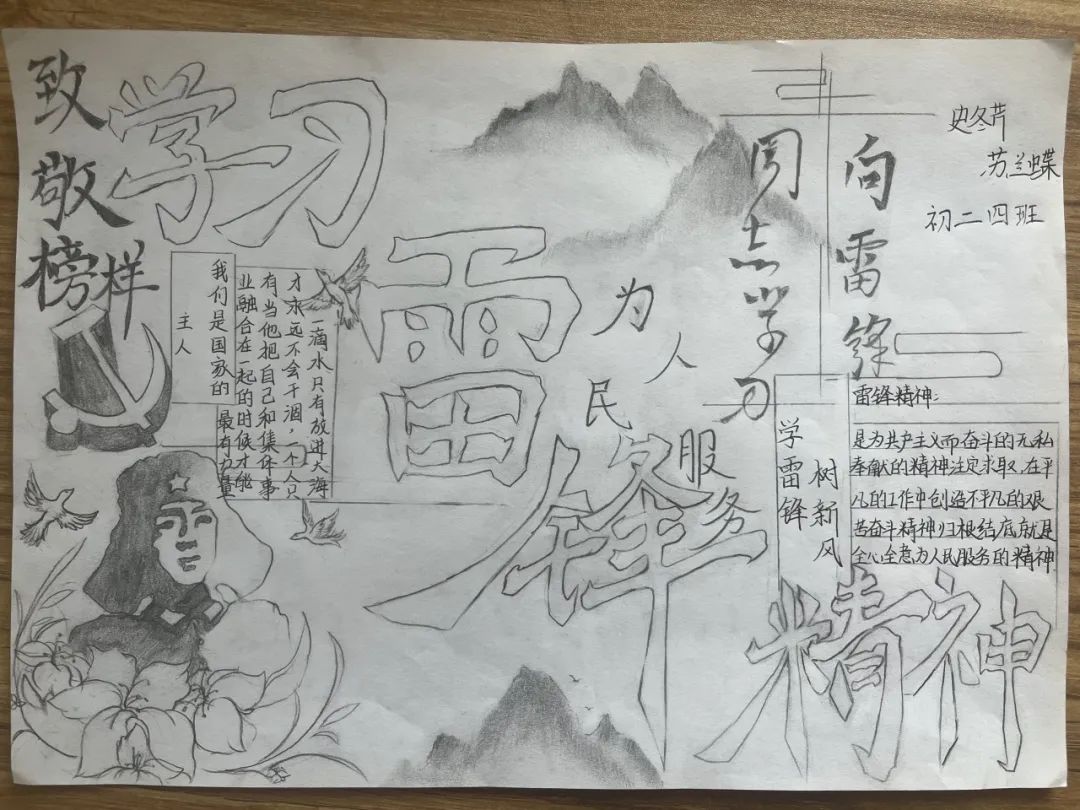 致敬榜样
学习
雷锋
精神
为人民服务
向雷锋
同志学习
史冬芹
苏兰蝶
初二四班
一滴水只有放进大海
才永远不会干涸,一个人只
有当他把自己和集体事
业融合在一起的时候才能
最有力量
我们是国家的
主人
学雷锋
树新风
雷锋精神:
是为共产主义而奋斗的无私
奉献的精神注定求取,在平
凡的工作中创造不平凡的艰
苦奋斗精神归根结底就是
全心全意为人民服务的精神